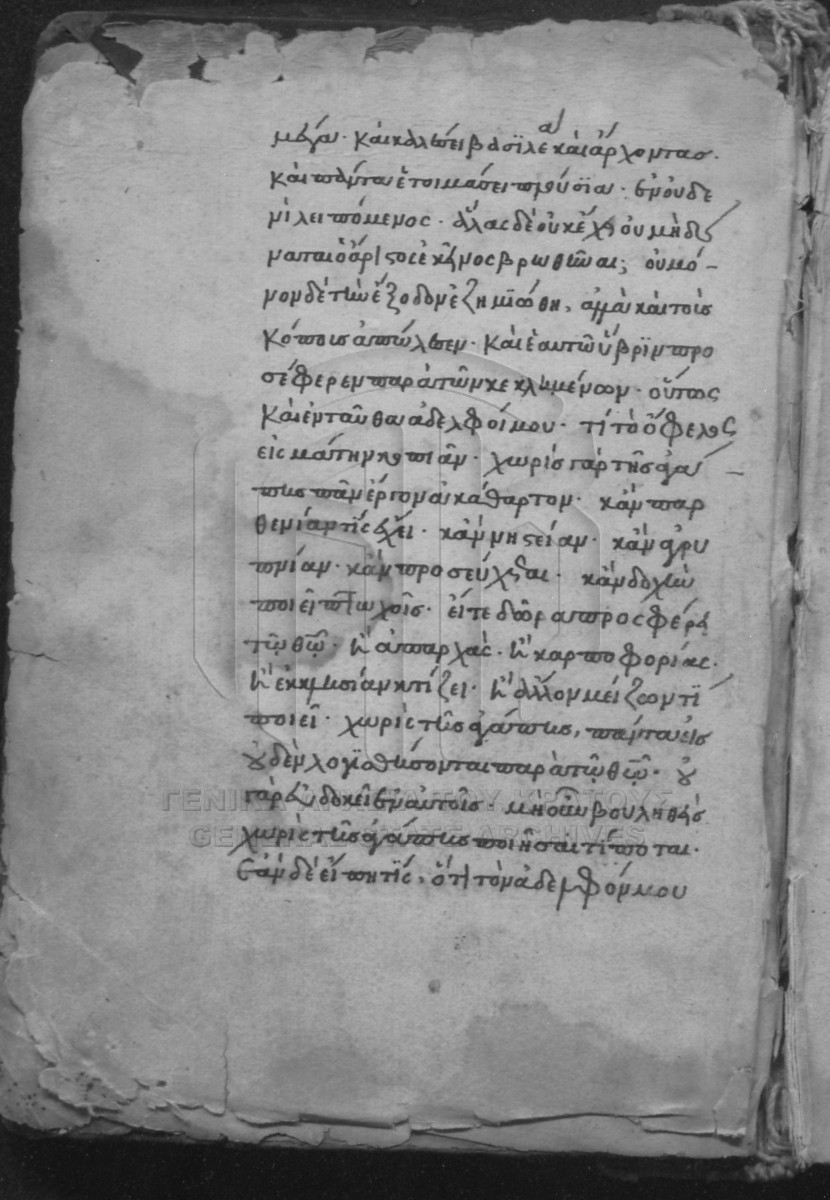 μέγα· καὶ καλέσει βασϊλεα καὶ ἄρχοντας·
καὶ πάντα ἑτοιμάσει πλουσϊα· ἐν οὐδε
νὶ λειπόμενος· ἅλας δὲ οὐκ ἔχει οὐ μὴ δυ
ναται ὁ ἄριστος ἐκεῖνος βρωθῆναι; οὐ μό-
νον δὲ τὴν ἔξοδον ἐζημϊώθη, ἀλλὰ καὶ τοῖς
κόποις ἀπώλεσεν· καὶ ἑαυτῶ ὕβρϊν προ
σέφερεν παρὰ τῶν κεκλημένων· οὕτως
καὶ ἐνταῦθα ἀδελφοί μου· τί τὸ ὄφελος
εἰς μάτην κοπιᾶν· χωρὶς γὰρ τῆς ἀγά
πης πᾶν ἔργον ἀκάθαρτον· κἂν παρ
θενίαν τίς ἔχει· κἂν νηστείαν· κἂν ἀγρυ
πνίαν· κἂν προσεύχεται· κἂν δοχὴν
ποιεῖ πτωχοῖς· εἴτε δῶρα προσφέρει
τῷ θῶ· ἢ ἀπαρχὰς· ἢ καρποφορίας·
ἢ ἐκκλησίαν κτίζει· ἢ ἄλλον μείζων τϊ
ποιεῖ· χωρὶς τῆς ἀγάπης, πάντα εἰς
οὐδὲν λογϊσθήσονται παρὰ τῷ θῶ· οὐ
γὰρ εὐδοκεῖ ἐν αὐτοῖς· μὴ οὖν βουληθῆς
χωρὶς τῆς ἀγάπης ποιῆσαι τί ποται·
Ἐὰν δὲ εἴπη τϊς, ὅτι τὸν ἀδελφόν μου
ΓΕΝΙΚΑ ΑΡΧΕΙΑ ΤΟΥ ΚΡΑΤΟΥΣ
GENERAL STATE ARCHIVES